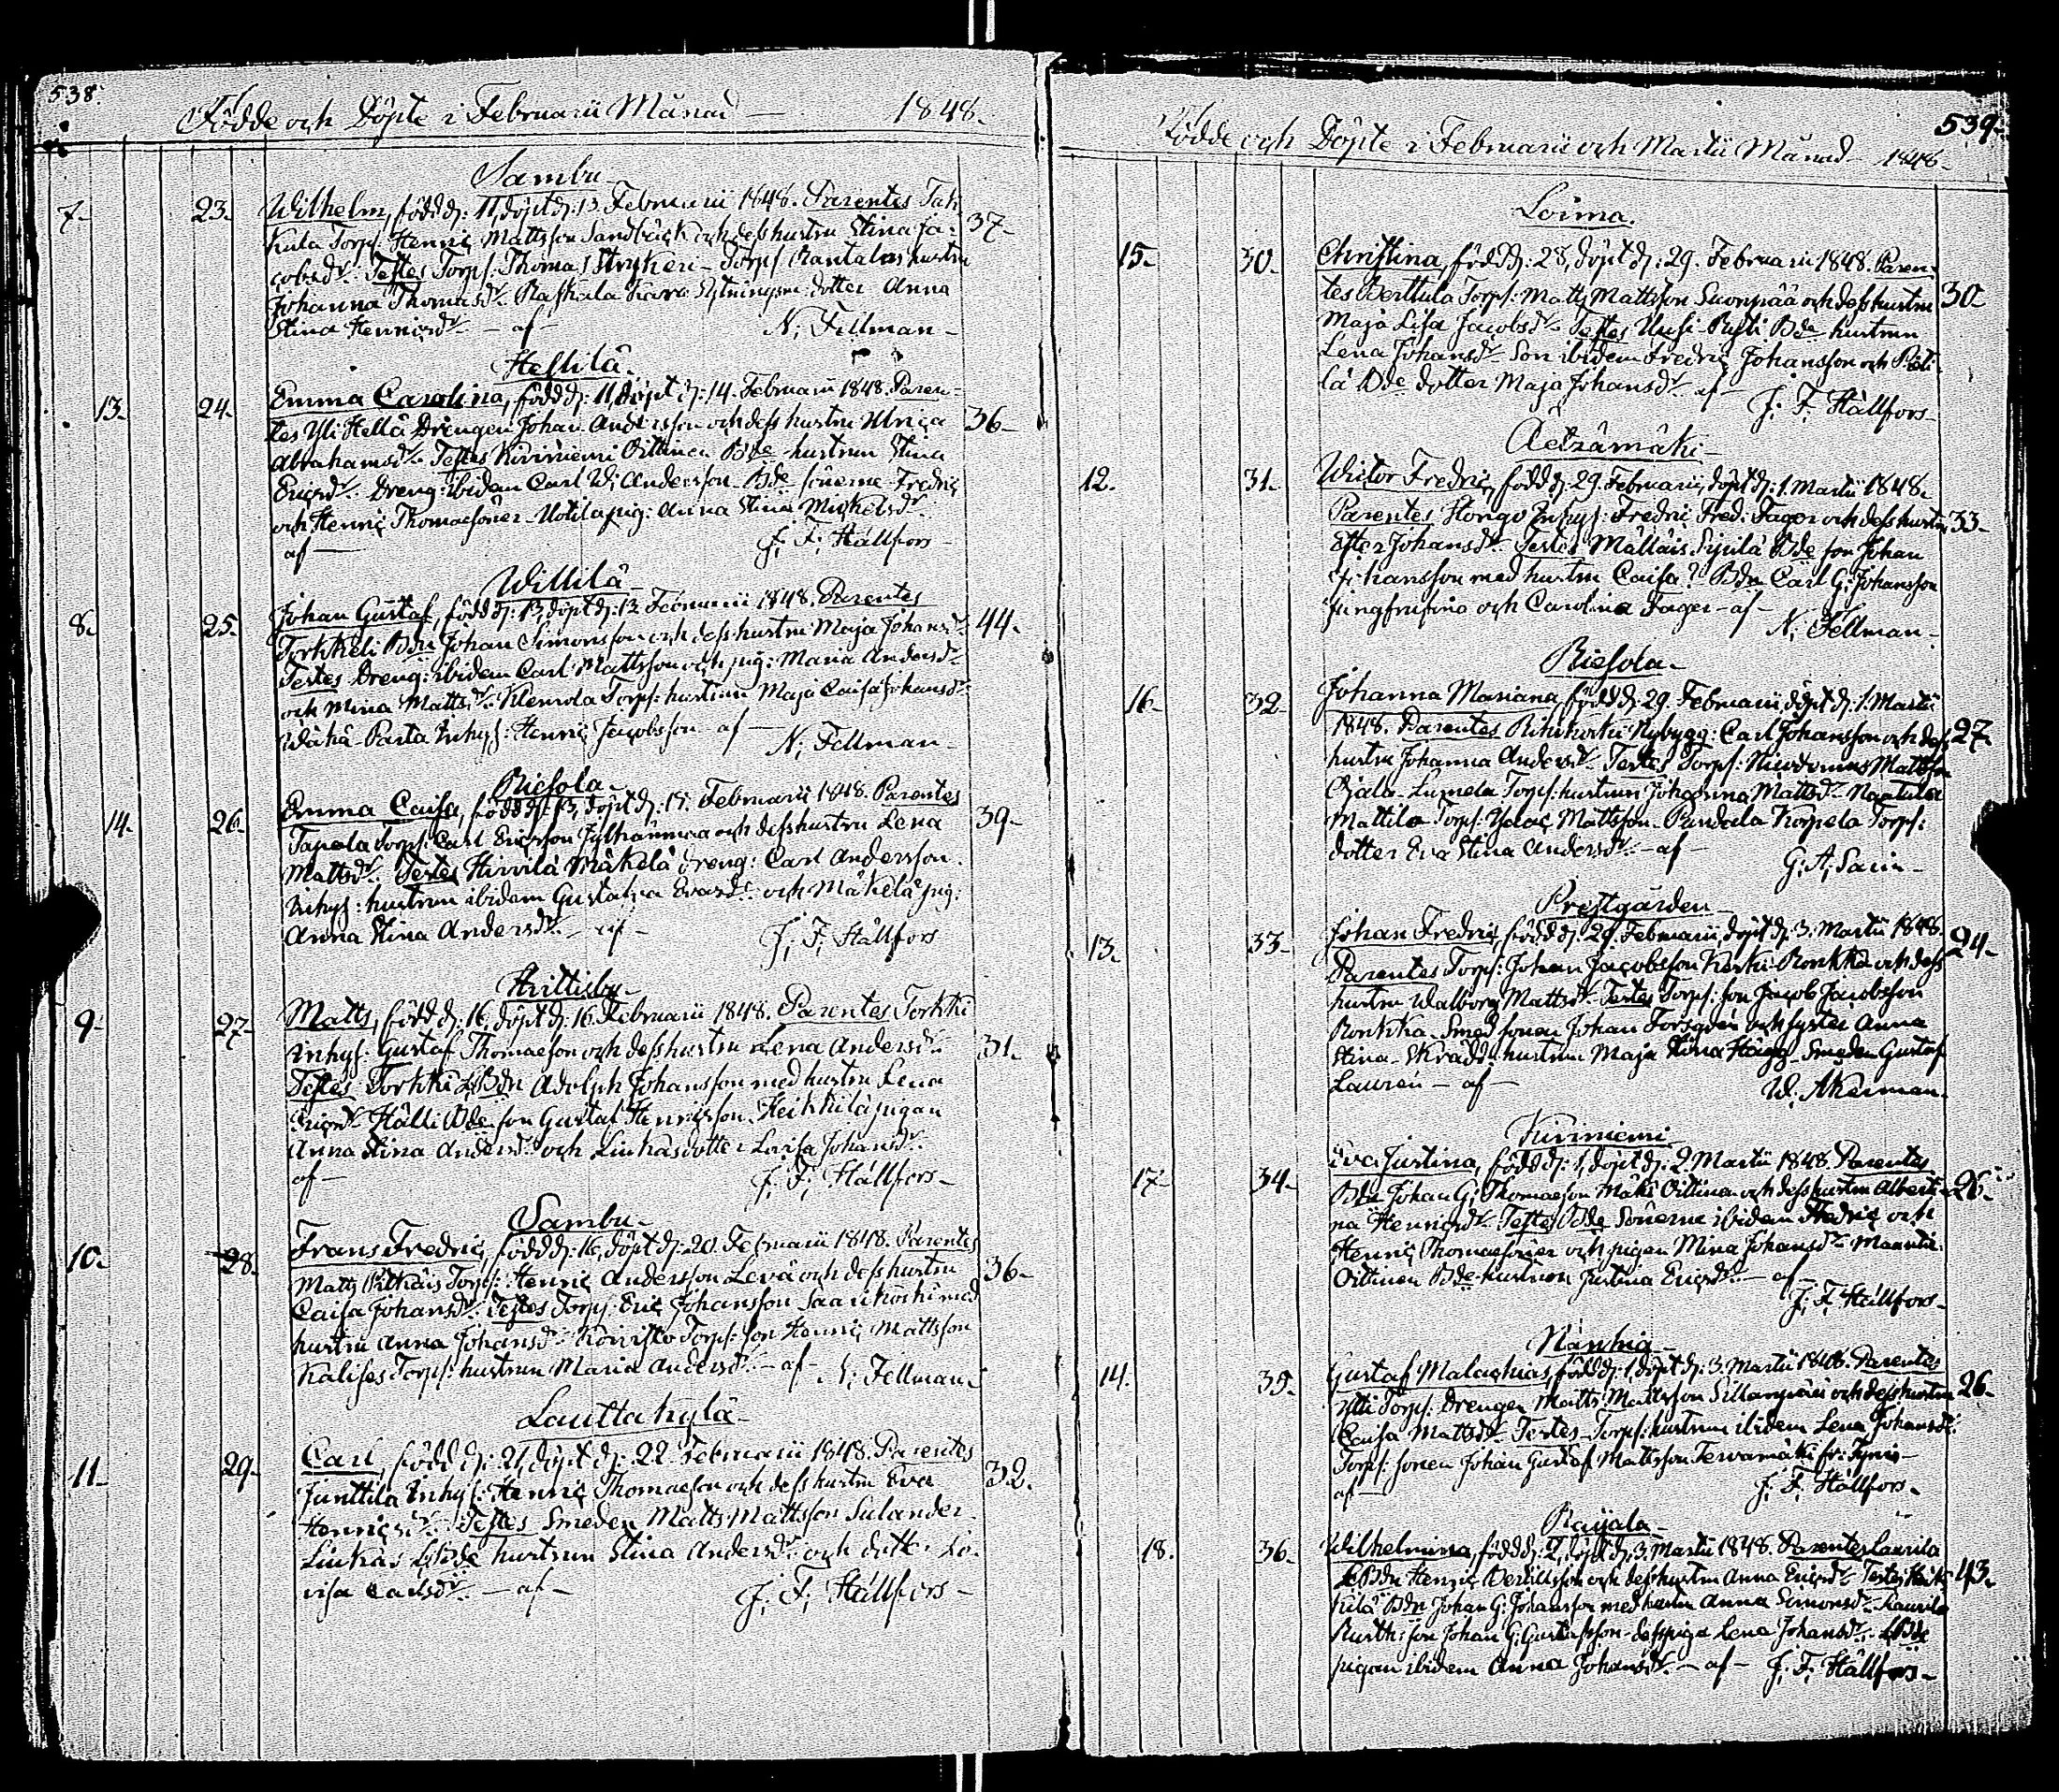 538.
Födde och Döpte i Februarii Månad — 1848.
Sambu
7. 23. Wilhelm, född d: 11, döpt d: 13 Februarii 1848. Parentes
Torp: Henric Mattsson Sandbäck och dess hustru Stina Ja- 37.
cobsdr. Testes Torp: Thomas Strykeri - Torps Rantalas hustru
Johanna Thomasdr. Raskala Karo dotter Anna
Stina Henricsdr. — af — N; Fellman —
Hellilä.
13. 24. Emma Carolina, född d: 11, döpt d: 14. Februarii 1848. Paren-
tes Yli Hellä Drengen Johan Andersson och dess hustru Ulrica 36
Abrahamsdr. Testes Kiviniemi Oittinen Bde hustrun Stina
Ericsdr. Dreng: ibidem Carl W; Andersson - Bde sönerne Fredric
och Henric Thomaesöner - Uotila pig: Anna Stina Mickelsdr.
af — J; F; Hällfors
Willilä
8. 25. Johan Gustaf, född d: 13, döpt d: 13 Februarii 1848. Parentes
Torkkeli Bdn Johan Simonsson och dess hustru Maja Johansdr. 44.
Testes Dreng: ibidem Carl Mattsson och pig: Maria Andersdr.
och Mina Mattsdr. Klemola Torp: hustrun Maja Caisa Johansdr.
Parta Inhys: Henric Jacobsson - af — N; Fellman —
Riesola
14. 26. Emma Caisa, född d: 13, döpt d: 15. Februarii 1848. Parentes
Tapola Torp: Carl Ericsson och dess hustru Lena 39.
Mattsdr. Testes Hirvilä Mäkelä dreng: Carl Andersson.
Inhys: hustrun ibidem Gustafva och Mäkelä pig:
Anna Stina Andersdr. — af — J; F; Hällfors
Hvittisby
9. 27. Matts, född d: 16, döpt d: 16. Februarii 1848. Parentes Torkki
Inhys: Gustaf Thomaeson och dess hustru Lena Andersdr. 31.
Testes Torkki LBdn Adolph Johansson med hustru Lena
Ericsdr. Hälli Bde son Gustaf Henricsson. Heikkilä pigan
Anna Stina Andersdr. och Linkas dotter Lovisa Johansdr.
af — J; F; Hällfors —
Sambu
10. 28. Frans Fredric, född d: 16, döpt d: 20. Februarii 1848. Parentes
Matts Torp: Henric Andersson Levä och dess hustru 36.
Caisa Johansdr. Testes Torp: Eric Johansson Saarikoski med
hustru Anna Johansdr. Koivisto Torp: son Henric Mattsson
Torp: hustrun Maria Andersdr. — af — N; Fellman
Lauttakylä
11. 29. Carl, född d: 21, döpt d: 22. Februarii 1848. Parentes
Junttila Inhys: Henric Thomaeson och dess hustru Eva 32.
Henricsdr. Testes Smeden Matts Mattsson Sulander.
Linkas LBde hustrun Stina Andersdr. och dotter Lo-
visa Carlsdr. — af — J; F; Hällfors —
539.
Födde och Döpte i Februarii och Martii Månad — 1848.
Loima.
15. 30. Christina, född d: 28, döpt d: 29. Februarii 1848. Paren-
tes Berttula Torp: Matts Mattsson Suonpää och dess hustru 30.
Maja Lisa Jacobsdr. Testes Uusi-Pysti Bde hustrun
Lena Johansdr. Son ibidem Fredric Johansson och
lä Bde dotter Maja Johansdr. af — J; F; Hällfors —
Äetsämäki
12. 31. Wictor Fredric, född d: 29. Februarii, döpt d: 1. Martii 1848.
Parentes Hongo Inhys: Fredric Fred: Fager och dess hustru 33.
Ester Johansdr. Testes Mälläis Sijvilä Bde son Johan
Johansson med hustru Caisa? Bdn Carl G; Johansson
och Carolina Fager - af — N; Fellman —
Riesola
16. 32. Johanna Mariana, född d: 29. Februarii, döpt d: 1. Martii
1848. Parentes Nybygg: Carl Johansson och dess 27.
hustru Johanna Andersdr. Testes Torp: Nicodemus Mattsson
Ojala - Lumela Torp: hustrun Johanna Mattsdr.
Mattila Torp: Isaac Mattsson - Korpela Torp:
dotter Eva Stina Andersdr. — af — G; A; Sacin —
Prestgården
13. 33. Johan Fredric, född d: 29. Februarii, döpt d: 3. Martii 1848. 24.
Parentes Torp: Johan Jacobsson Ronkka och dess
hustru Walborg Mattsdr. Testes Torp: son Jacob Jacobsson
Ronkka. Smed sonen Johan Forsgren och syster Anna
Stina. Skrädd: hustrun Maja Stina Hägg - Smeden Gustaf
Laurén — af — W; Åkerman.
Kiviniemi
17. 34. Eva Justina, född d: 1, döpt d: 2 Martii 1848. Parentes
Bdn Johan G; Thomaeson Mäki Oittinen och dess hustru Alberti- 26.
na Henricsdr. Testes Bde Sönerne ibidem Fredric och
Henric Thomaesöner och pigan Mina Johansdr.
Oittinen Bde hustrun Justina Ericsdr. — af —
J; F; Hällfors —
Nanhia
14. 35. Gustaf Malachias, född d: 1, döpt d: 3. Martii 1848. Parentes
Torp: Drengen Matts Mattsson Sillanpää och dess hustru 26.
Caisa Mattsdr. Testes Torp: hustrun ibidem Lena Johansdr.
Torp: sonen Johan Gustaf Mattsson Tervamäki
af — J; F; Hällfors.
Raijala
18. 36. Wilhelmina, född d: 2, döpt d: 3. Martii 1848. Parentes Laurila
LBdn Henric och dess hustru Anna Ericsdr. Testes Heik- 43.
kilä Bdn Johan G; Johansson med hustru Anna Simonsdr. Laurila
son Johan G; Gustafsson - dess piga Lena Johansdr. LBde
pigan ibidem Anna Johansdr. — af — J; F; Hällfors —